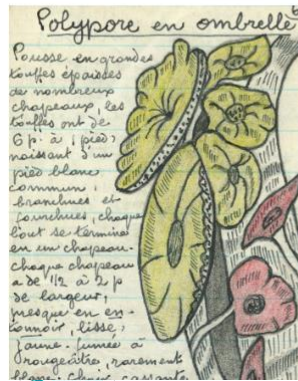 Polypore en ombrelle
Pousse en grandes
touffes épaisses
de nombreux
chapeaux, les
touffes ont de
6 p. à 1 pied,
naissant d'un
pied blanc
commun,
branchues et
fourchues, chaque
bout se termine
en un chapeau.
chaque chapeau
a de 1/2 à 2 p
de largeur,
presque en en-
tonnoir, lisse,
jaune-fumée à
rougeâtre, rarement
blanc. Chair cassante